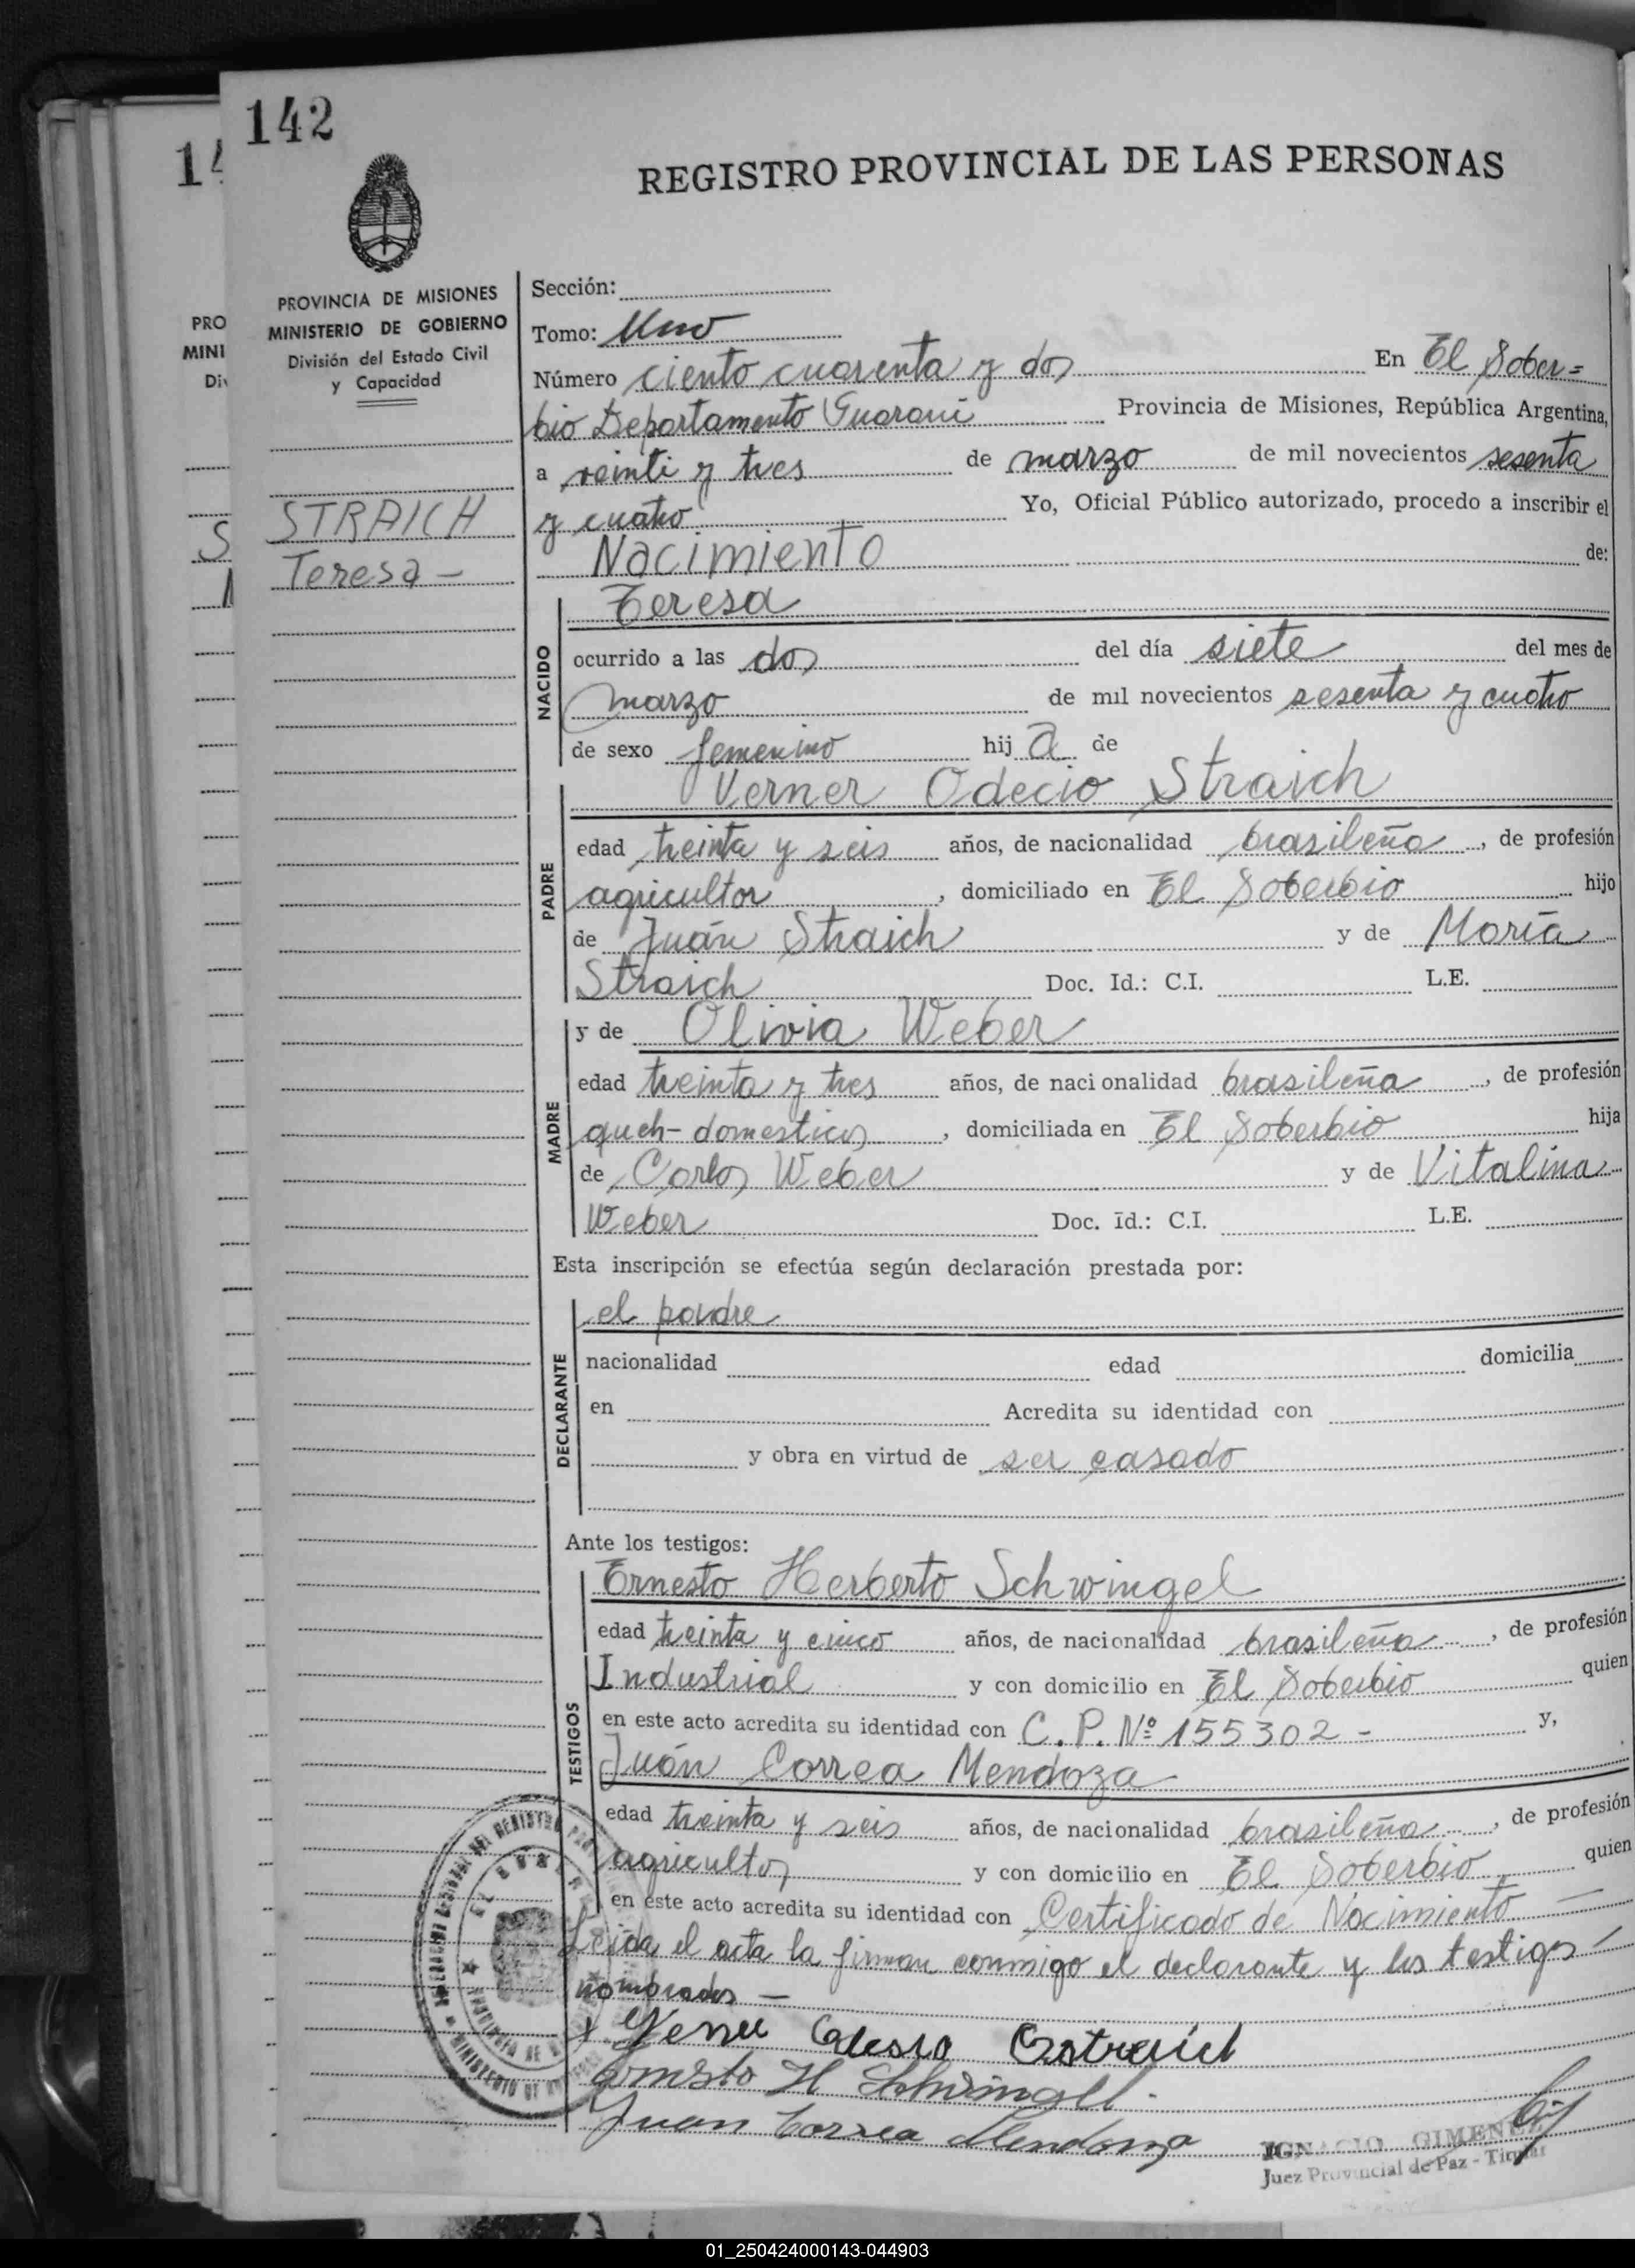 142
14
REGISTRO PROVINCIAL DE LAS PERSONAS
PROVINCIA DE MISIONES
MINISTERIO DE GOBIERNO
División del Estado Civil
y Capacidad
PRO
MINI
Di
S
STRAICH
Teresa -
Sección:
Tomo: Uno
Número ciento cuarenta y dos En El Sober=
bio Departamento Guarani Provincia de Misiones, República Argentina,
a veinti y tres de marzo de mil novecientos sesenta
y cuatro Yo, Oficial Público autorizado, procedo a inscribir el
Nacimiento de:
Teresa
NACIDO
ocurrido a las dos del día siete del mes de
marzo de mil novecientos sesenta y cuatro
de sexo femenino hij a de
Verner Odecio Straich
PADRE
edad treinta y seis años, de nacionalidad brasileña, de profesión
agricultor, domiciliado en El Soberbio hijo
de Juán Straich y de María
Straich Doc. Id.: C.I. L.E.
y de Olivia Weber
MADRE
edad treinta y tres años, de nacionalidad brasileña, de profesión
queh-domesticos, domiciliada en El Soberbio hija
de Carlos Weber y de Vitalina
Weber Doc. Id.: C.I. L.E.
Esta inscripción se efectúa según declaración prestada por:
el padre
DECLARANTE
nacionalidad edad domicilia
en Acredita su identidad con
y obra en virtud de ser casado
Ante los testigos:
Ernesto Herberto Schwingel
TESTIGOS
edad treinta y cinco años, de nacionalidad brasileña, de profesión
Industrial y con domicilio en El Soberbio quien
en este acto acredita su identidad con C.P. Nº 155302 - y,
Juán Correa Mendoza
edad treinta y seis años, de nacionalidad brasileña, de profesión
agricultor y con domicilio en El Soberbio quien
en este acto acredita su identidad con Certificado de Nacimiento —
Leida el acta la firman conmigo el declarante y los testigos
nombrados —
Ernesto H Schwingel.
Juan Correa Mendoza
IGNACIO GIMENEZ
Juez Provincial de Paz - Titular
01_250424000143-044903